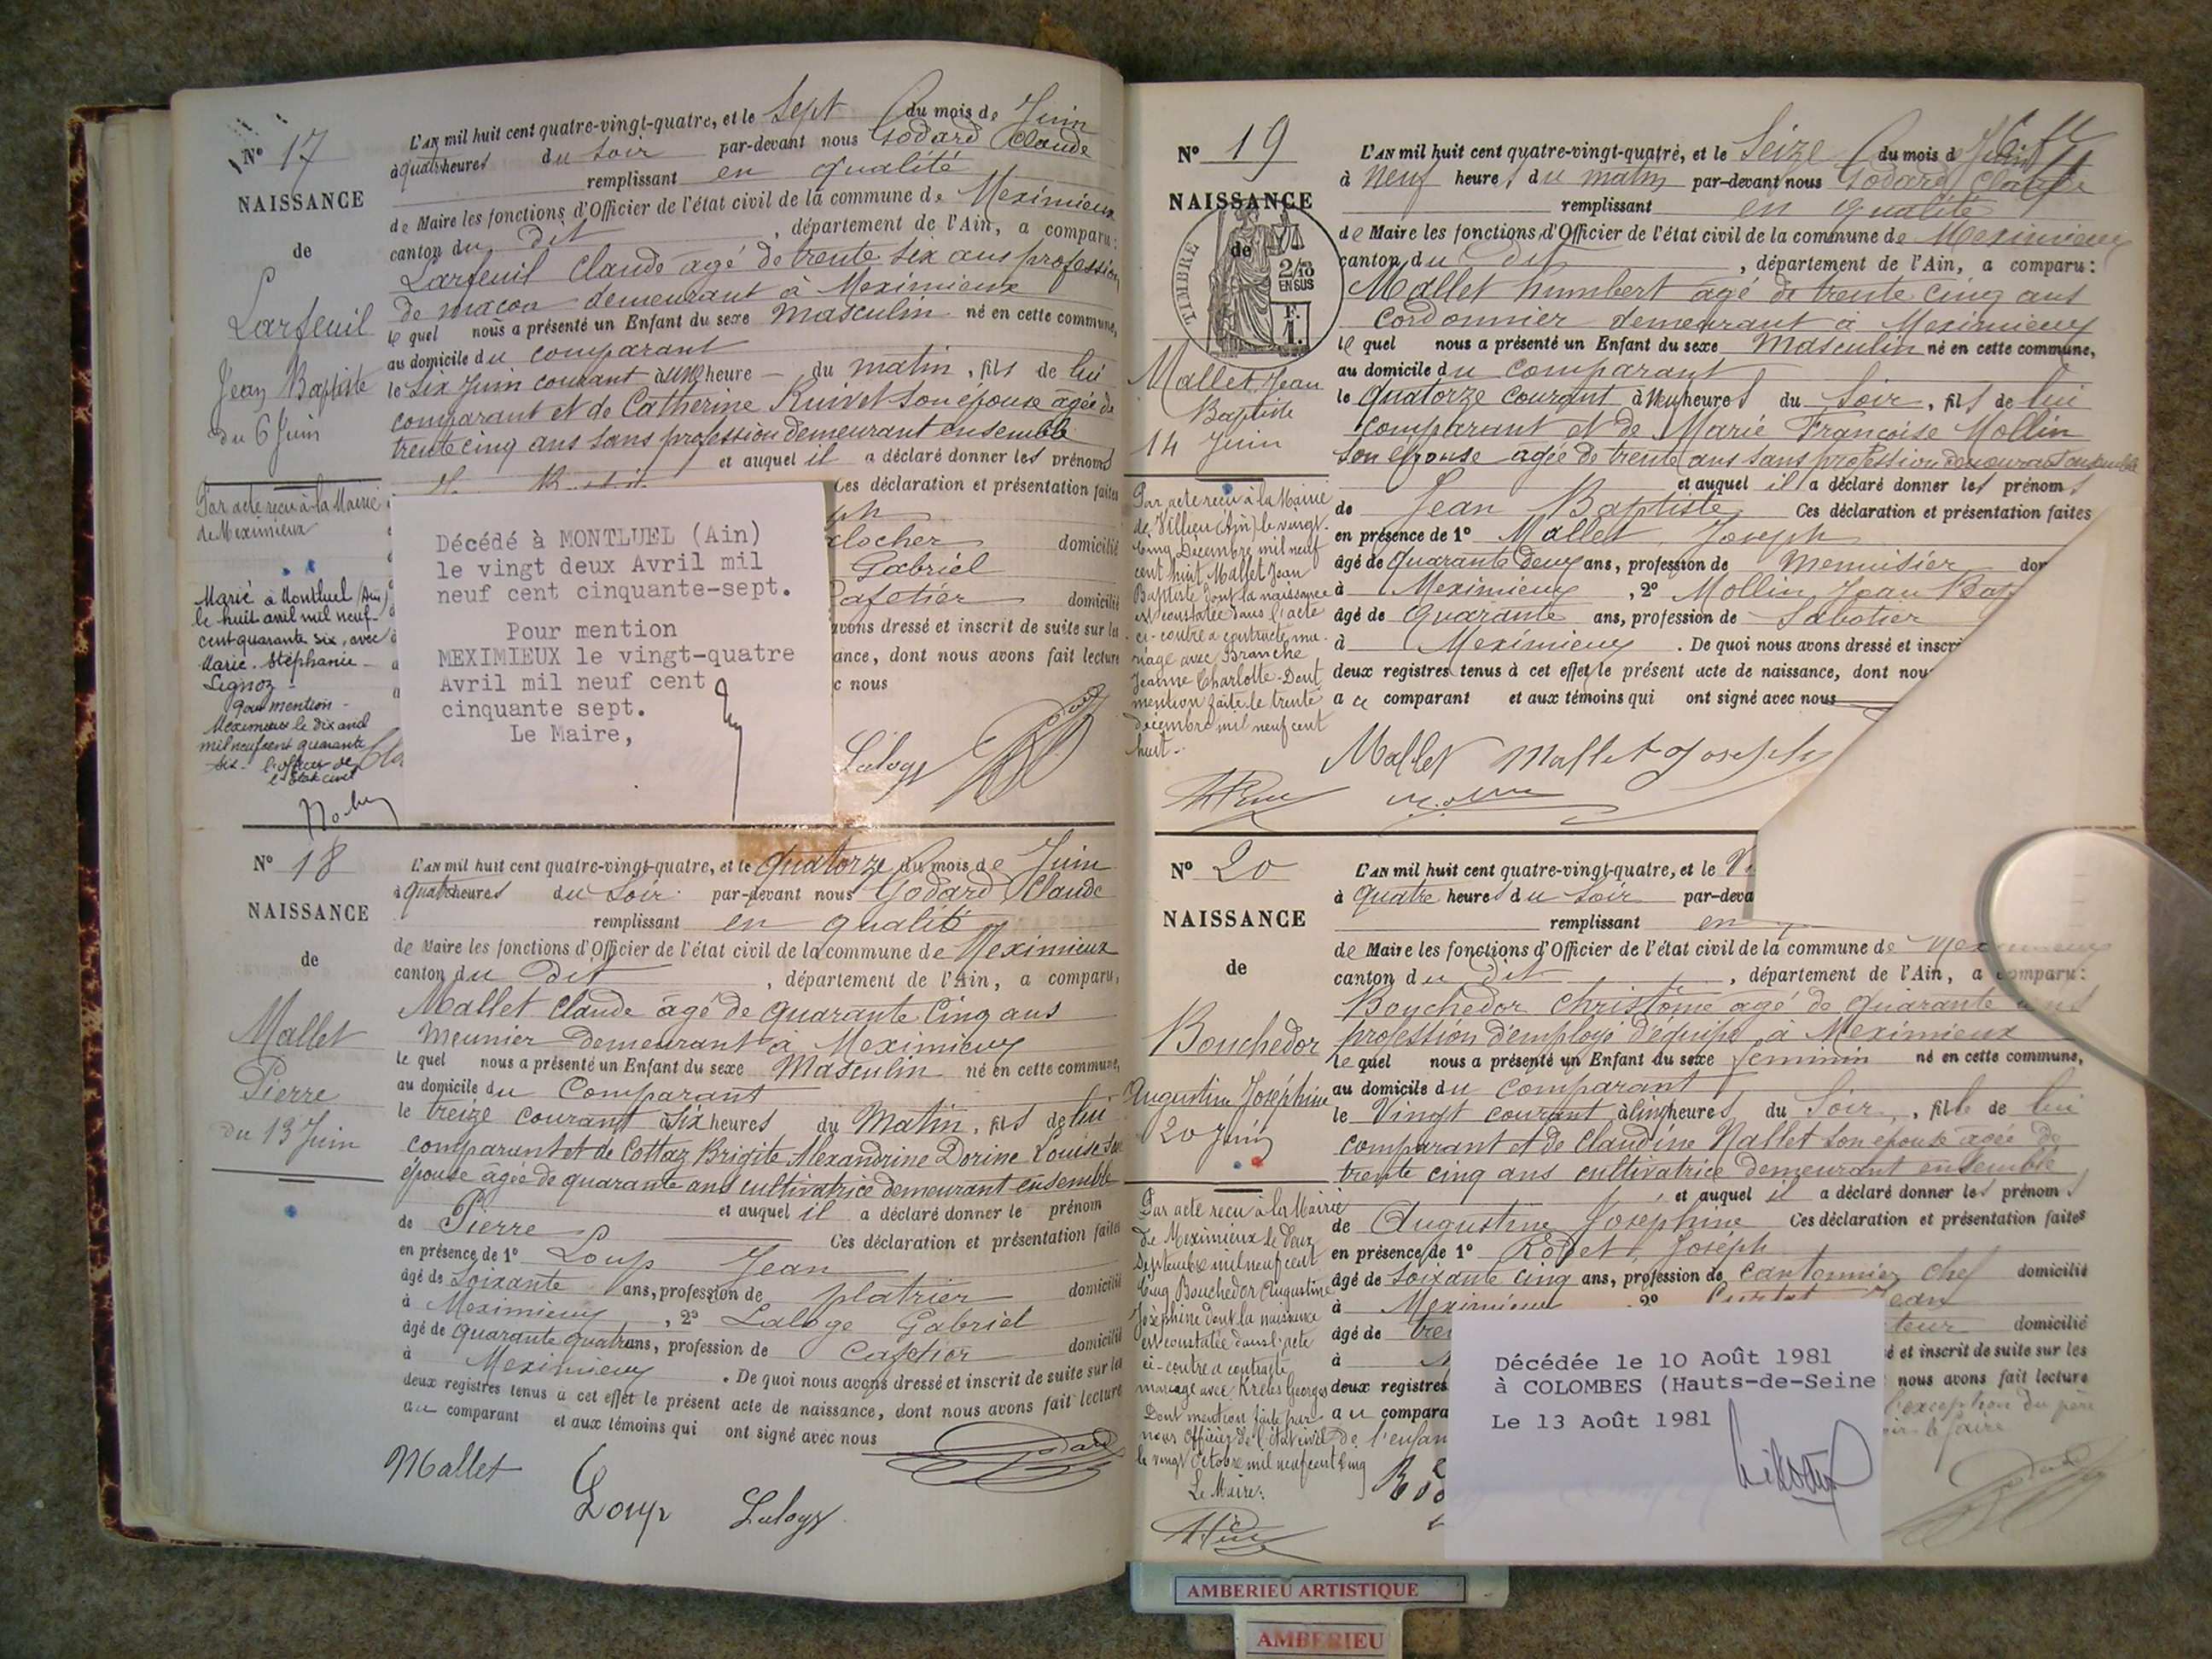 N° 17
NAISSANCE
de
Larfeuil
Jean Baptiste
du 6 Juin
L'AN mil huit cent quatre-vingt-quatre, et le Sept du mois de Juin
à quatre heures du Soir par-devant nous Godard Claude
remplissant en qualité
de Maire les fonctions d'Officier de l'état civil de la commune de Meximieux
canton du dit, département de l'Ain, a comparu:
Larfeuil Claude agé de trente six ans profession
de maçon demeurant à Meximieux
le quel nous a présenté un Enfant du sexe Masculin né en cette commune,
au domicile du comparant
le Six Juin courant à une heure du matin, fils de lui
comparant et de Catherine Ruivet son épouse agée de
trente cinq ans sans profession demeurant ensemble
et auquel il a déclaré donner les prénoms
Ces déclaration et présentation faites
domicilié
Gabriel
Cafetier domicilié
avons dressé et inscrit de suite sur les
ance, dont nous avons fait lecture
c nous
Par acte reçu à la Mairie
de Meximieux
Marié à Montluel (Ain)
le huit avril mil neuf-
cent quarante six, avec
Marie. Stéphanie
Lignoz -
Pour mention -
Meximieux le dix avril
mil neuf cent quarante
six - l'officier de
l'état civil
Décédé à MONTLUEL (Ain)
le vingt deux Avril mil
neuf cent cinquante-sept.
Pour mention
MEXIMIEUX le vingt-quatre
Avril mil neuf cent
cinquante sept.
Le Maire,
N° 18
NAISSANCE
de
Mallet
Pierre
du 13 Juin
L'AN mil huit cent quatre-vingt-quatre, et le quatorze du mois de Juin
à quatre heures du Soir par-devant nous Godard Claude
remplissant en qualité
de Maire les fonctions d'Officier de l'état civil de la commune de Meximieux
canton du dit, département de l'Ain, a comparu,
Mallet Claude agé de quarante cinq ans
Meunier demeurant à Meximieux
le quel nous a présenté un Enfant du sexe Masculin né en cette commune,
au domicile du Comparant
le treize courant à six heures du Matin, fils de lui
comparant et de Cottaz Brigite Alexandrine Dorine Louise son
épouse agée de quarante ans cultivatrice demeurant ensemble
et auquel il a déclaré donner le prénom
de Pierre Ces déclaration et présentation faites
en présence de 1° Loup Jean
âgé de Soixante ans, profession de platrier domicilié
à Meximieux, 2° Laloge Gabriel
âgé de quarante quatre ans, profession de Cafetier domicilié
à Meximieux. De quoi nous avons dressé et inscrit de suite sur les
deux registres tenus à cet effet le présent acte de naissance, dont nous avons fait lecture
au comparant et aux témoins qui ont signé avec nous
Mallet Loup Laloge
N° 19
NAISSANCE
de
TIMBRE
2/10
EN SUS
F.
1.
Mallet Jean
Baptiste
14 Juin
L'AN mil huit cent quatre-vingt-quatre, et le Seize du mois d
à neuf heures du matin par-devant nous Godard Claude
remplissant en qualité
de Maire les fonctions d'Officier de l'état civil de la commune de Meximieux
canton du dit, département de l'Ain, a comparu:
Mallet humbert agé de trente cinq ans
Cordonnier demeurant à Meximieux
le quel nous a présenté un Enfant du sexe Masculin né en cette commune,
au domicile du Comparant
le quatorze courant à neuf heures du Soir, fils de lui
comparant et de Marie Françoise Mollin
son épouse agée de trente ans sans profession demeurant ensemble
et auquel il a déclaré donner les prénoms
de Jean Baptiste Ces déclaration et présentation faites
en présence de 1° Mallet Joseph
âgé de quarante deux ans, profession de Menuisier dom
à Meximieux, 2° Mollin Jean Bap
âgé de quarante ans, profession de Sabotier
à Meximieux. De quoi nous avons dressé et inscr
deux registres tenus à cet effet le présent acte de naissance, dont nou
a ce comparant et aux témoins qui ont signé avec nous
Mallet Mallet Joseph
Par acte reçu à la Mairie
de Villieu (Ain) le vingt-
cinq Décembre mil neuf
cent huit Mallet Jean
Baptiste dont la naissance
est constatée dans l'acte
ci-contre a contracté ma-
riage avec Branche
Jeanne Charlotte - Dont
mention faite le trente
décembre mil neuf cent
huit -
N° 20
NAISSANCE
de
Bouchedor
Augustine Joséphine
20 Juin
L'AN mil huit cent quatre-vingt-quatre, et le V
à quatre heures du Soir par-deva
remplissant en
de Maire les fonctions d'Officier de l'état civil de la commune de Meximieux
canton du dit, département de l'Ain, a comparu:
Bouchedor Christome agé de quarante ans
profession d'employé d'équipe à Meximieux
le quel nous a présenté un Enfant du sexe féminin né en cette commune,
au domicile du comparant
le Vingt courant à cinq heures du Soir, fille de lui
comparant et de Claudine Mallet son épouse agée de
trente cinq ans cultivatrice demeurant ensemble
et auquel il a déclaré donner les prénoms
de Augustine Josephine Ces déclaration et présentation faites
en présence de 1° Rodet Joseph
âgé de soixante cinq ans, profession de cantonnier chef domicilié
à Meximieux 2° Curtet Jean
âgé de tre teur domicilié
à M é et inscrit de suite sur les
deux registres nous avons fait lecture
au compara l'exception du père
de l'enfan le faire
Par acte reçu à la Mairie
de Meximieux le deux
Septembre mil neuf cent
cinq Bouchedor Augustine
Joséphine dont la naissance
est constatée dans l'acte
ci-contre a contracté
mariage avec Krebs Georges
Dont mention faite par
nous Officier de l'état civil
le vingt Octobre mil neuf cent cinq
Le Maire:
Décédée le 10 Août 1981
à COLOMBES (Hauts-de-Seine
Le 13 Août 1981
AMBERIEU ARTISTIQUE
AMBERIEU